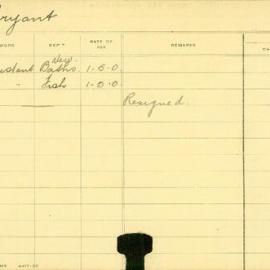 ryant
WORK DEPT RATE OF PAY REMARKS
New
udant Baths 1-5-0
" Fish 1-5-0
Resigned.